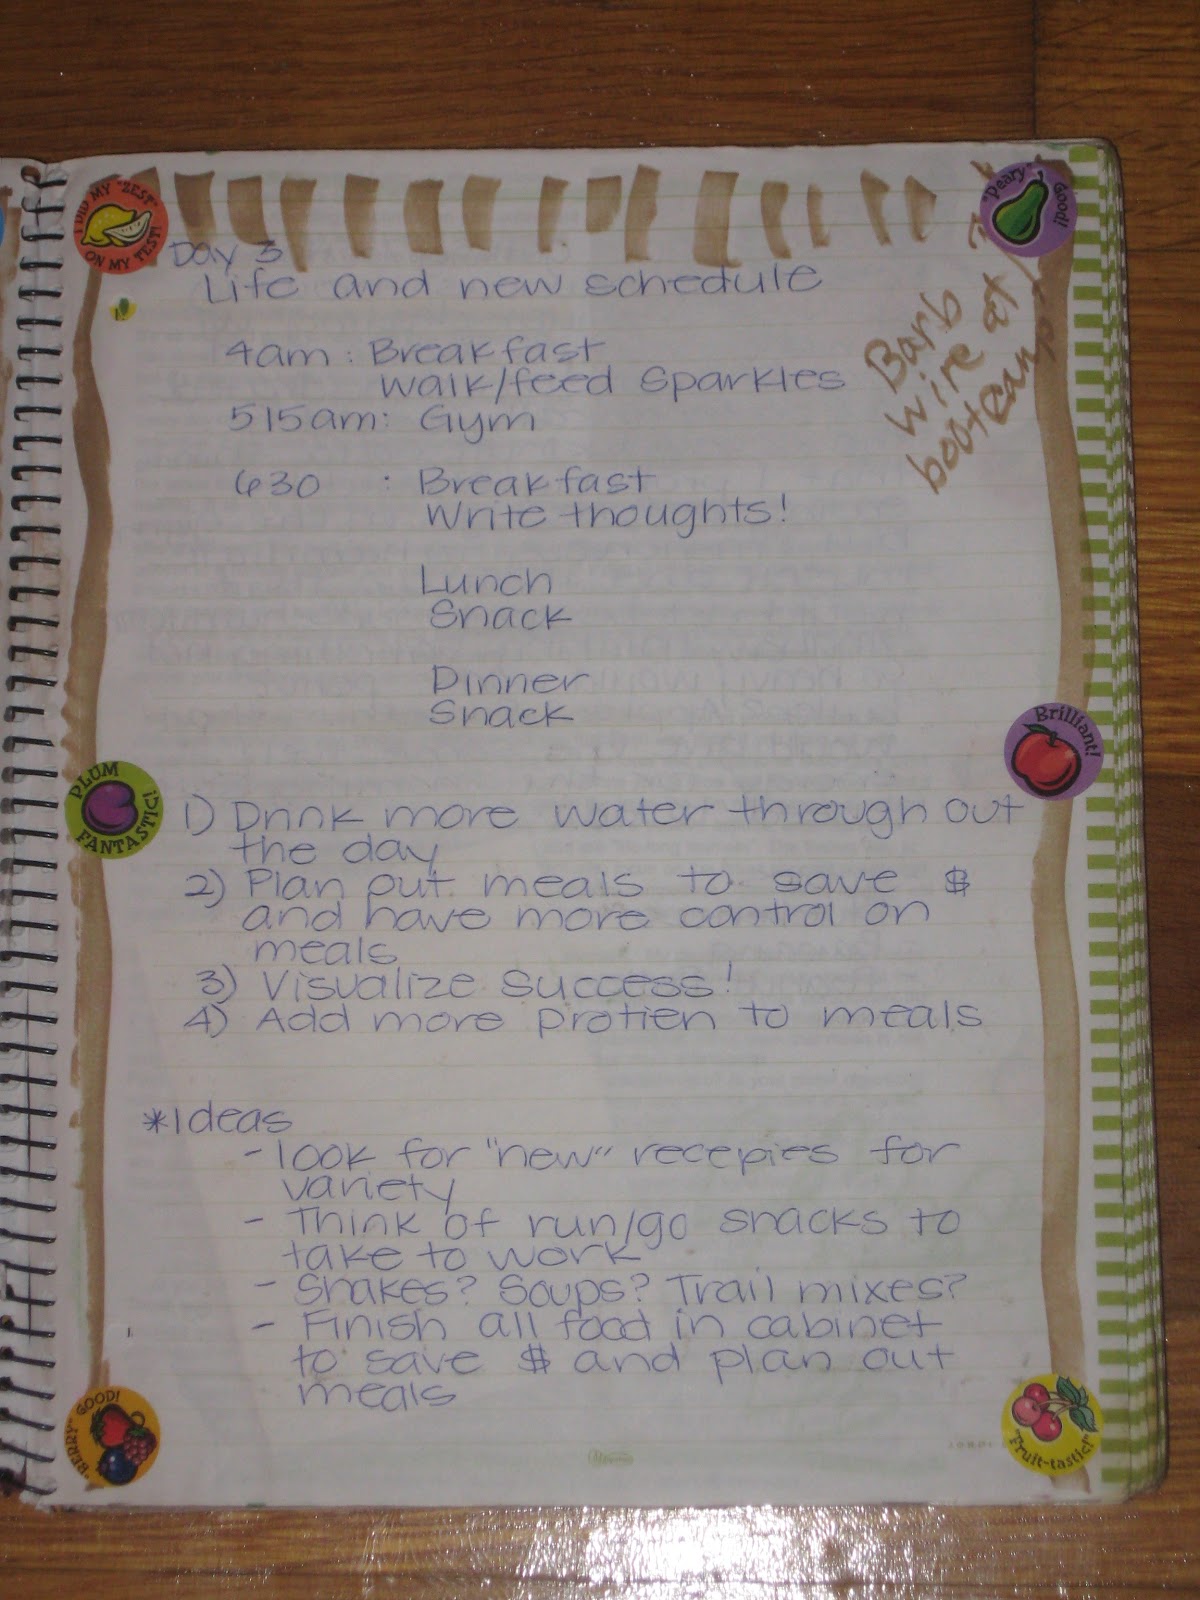 I DID MY "ZEST"
ON MY TEST!
"Peary"
Good!
Day 3
Life and new schedule
Barb
wire at
bootcamp
4am : Breakfast
walk/feed Sparkles
515am: Gym
630 : Breakfast
Write thoughts!
Lunch
Snack
Dinner
Snack
Brilliant!
PLUM
FANTASTIC!
1) Drink more water through out
the day
2) Plan out meals to save $
and have more control on
meals
3) Visualize Success!
4) Add more Protien to meals
*Ideas
- look for "new" recepies for
variety
- Think of run/go snacks to
take to work
- Shakes? Soups? Trail mixes?
- Finish all food in cabinet
to save $ and plan out
meals
"BERRY" GOOD!
"Fruit-tastic!"